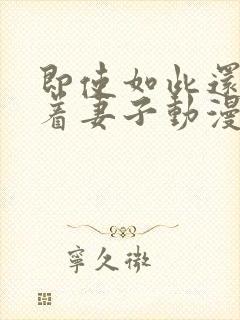 即使如此還
着妻子動漫
寧久微